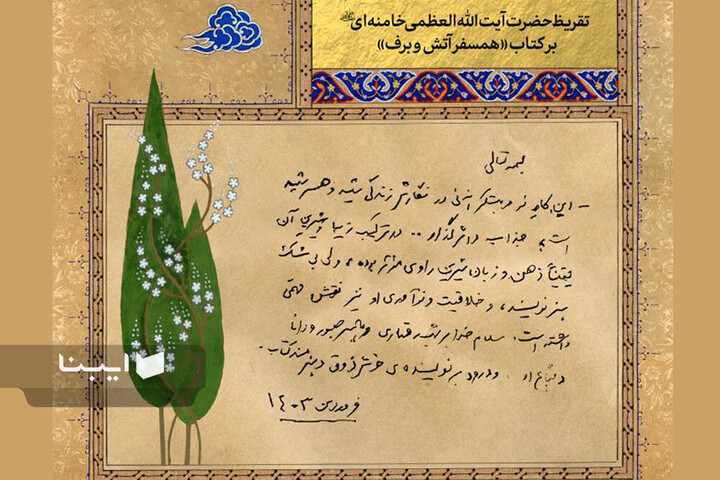 تقریظ حضرت آیت الله العظمی خامنه‌ای
بر کتاب «همسفر آتش و برف»
بسمه تعالی
- این کار نو و مبتکرانه‌ئی در نگارش زندگی شهید و همسر شهید
است، جذاب و اثرگذار .. در ترکیب زیبا و شیرین آن
یقیناً ذهن و زبان شیرین راوی مؤثر بوده، ولی بی‌شک
هنر نویسنده، و خلاقیت و نوآوری او نیز نقش مهمّی
داشته است. سلام خدا بر شهید قهاری و همسر صبور و دانا
و او. و درود بر نویسنده‌ی خوش‌ذوق و هنرمند کتاب.
فروردین ۱۴۰۳
ایبنا